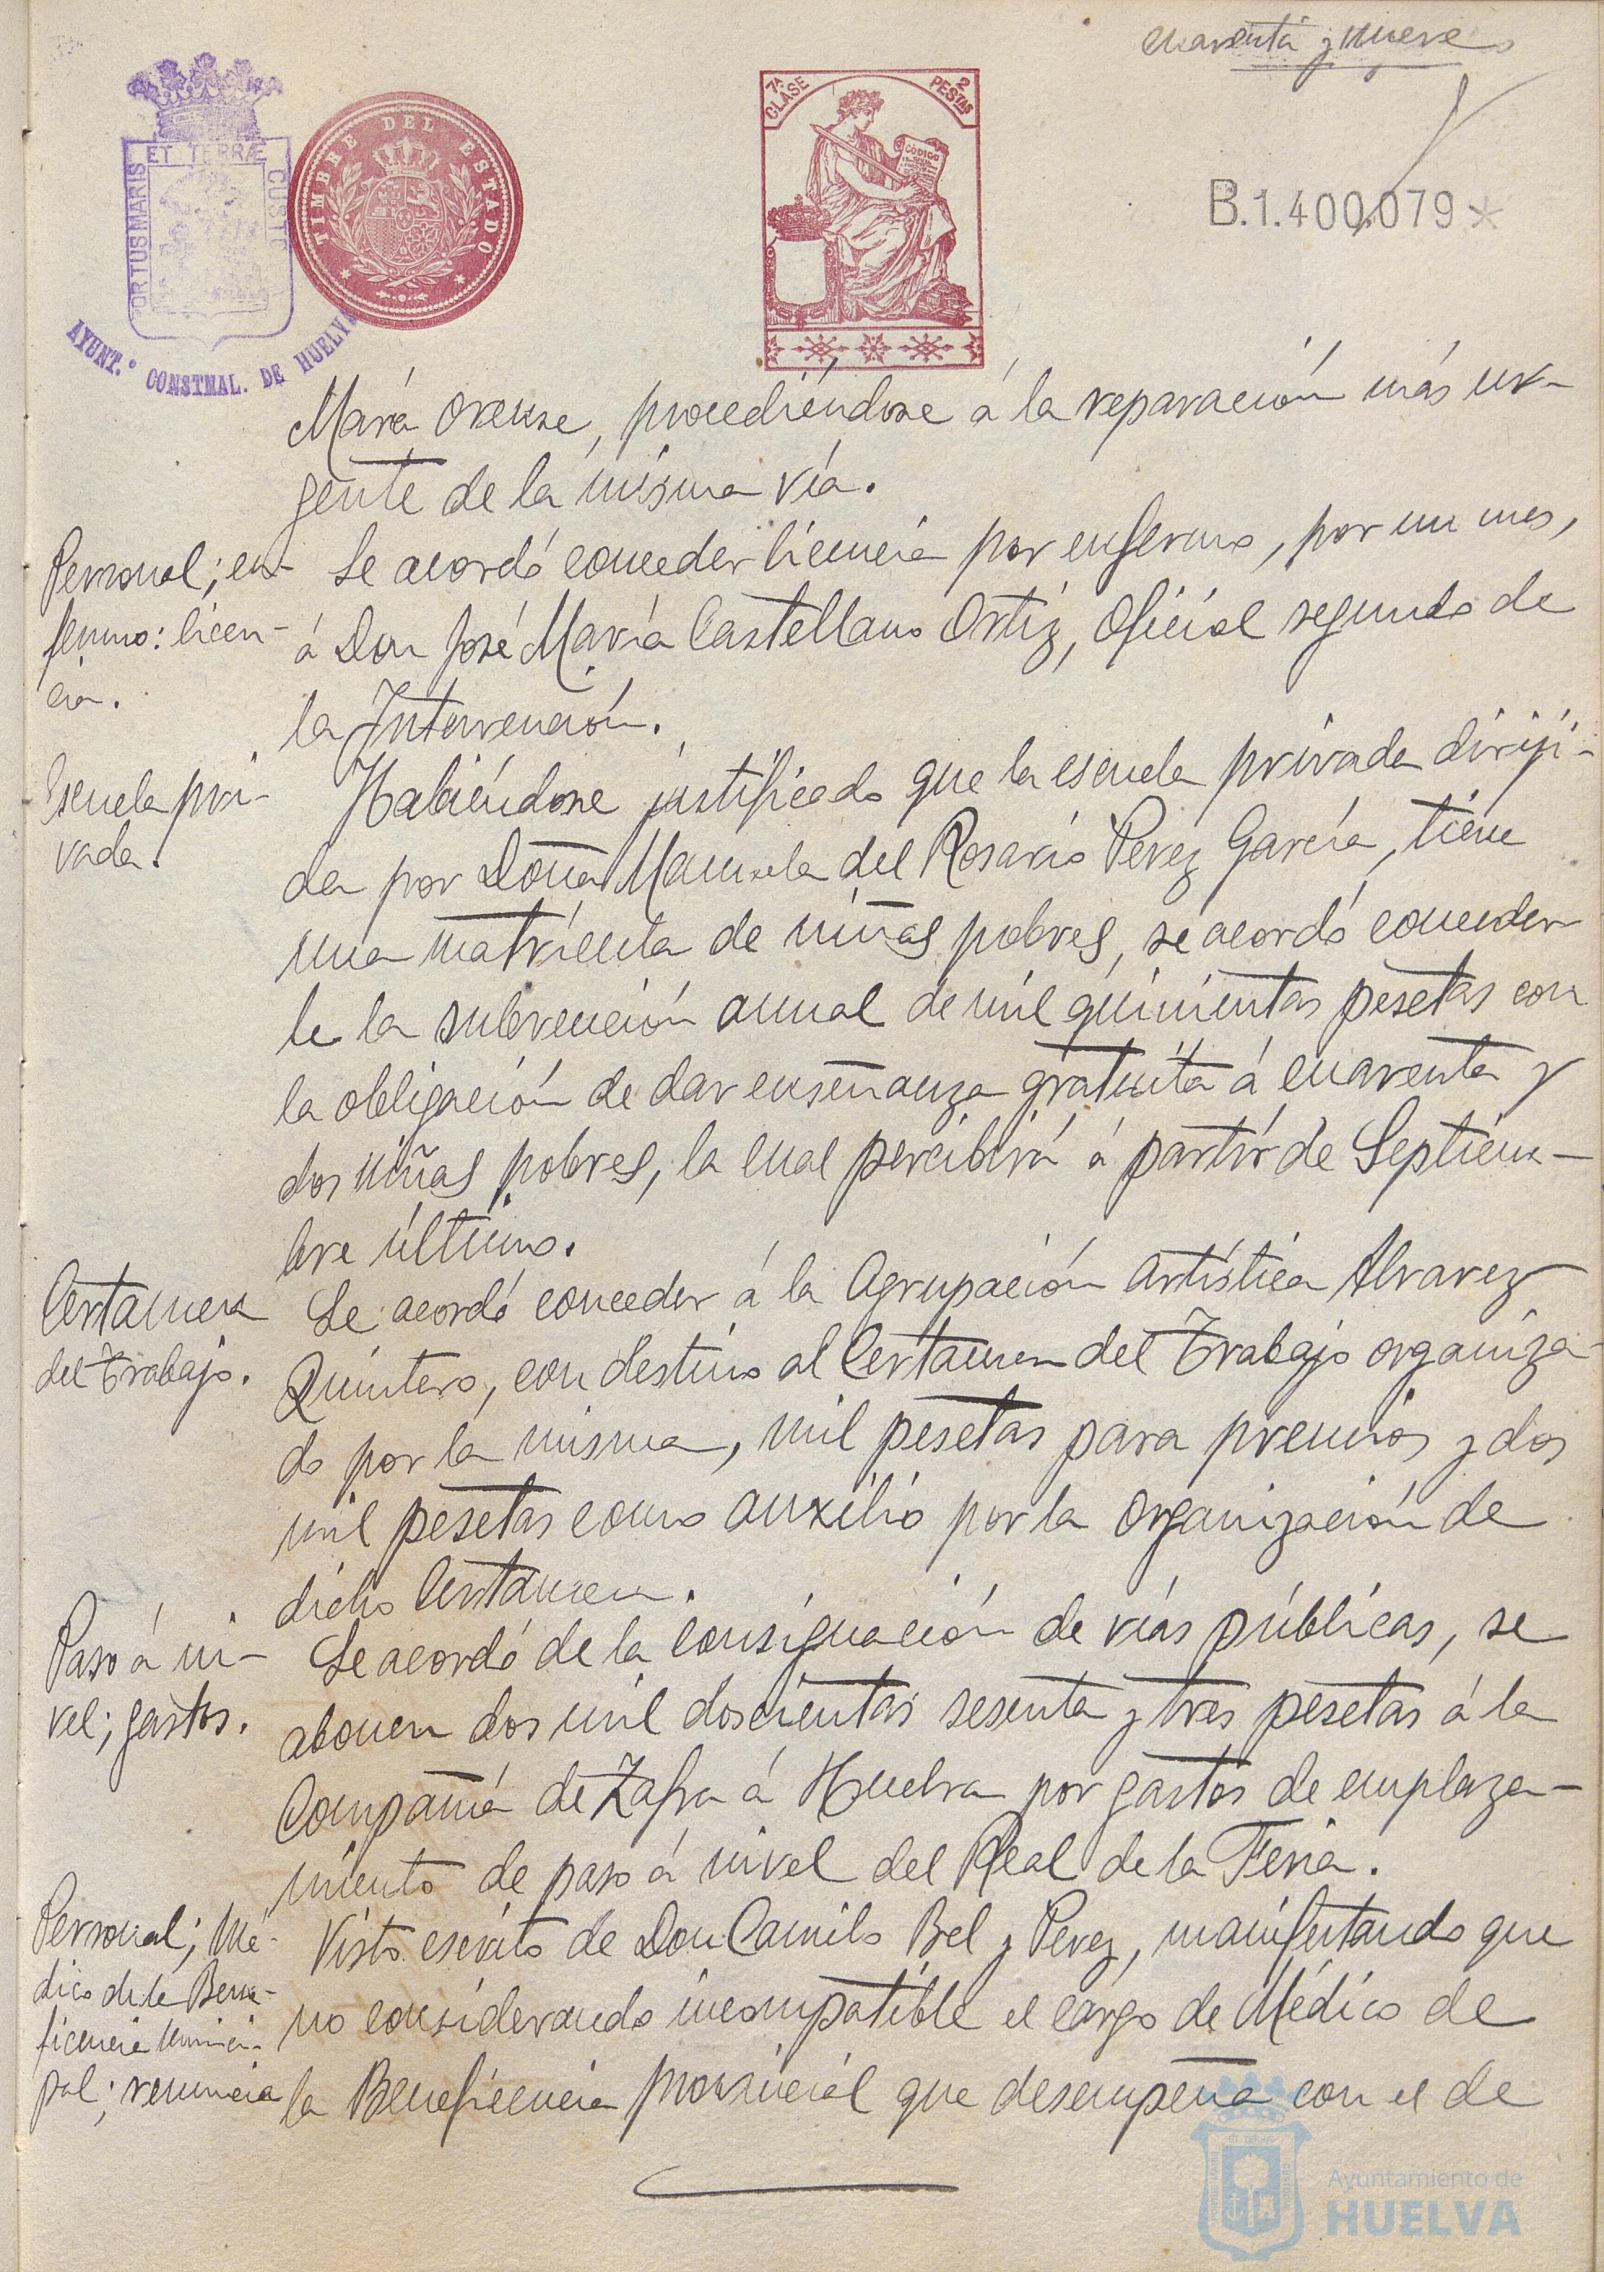 cuarenta y nueve
7ª CLASE
2 PESTAS
CÓDIGO
TIMBRE DEL ESTADO
PORTUS MARIS ET TERRÆ CUSTO
AYUNT.º CONSTNAL. DE HUELVA
B.1.400,079*
Mará Orense, procediéndose á la reparación más ur-
gente de la misma vía.
Personal; en-
fermo: licen-
cia.
Se acordó conceder licencia por enfermo, por un mes,
á Don José María Castellano Ortiz, Oficial segundo de
la Intervención.
Escuela pri-
vada.
Habiéndose justificado que la escuela privada dirigi-
da por Doña Manuela del Rosario Perez García, tiene
una matrícula de niñas pobres, se acordó conceder
le la subvención anual de mil quinientas pesetas con
la obligación de dar enseñanza gratuita á cuarenta y
dos niñas pobres, la cual percibirá á partir de Septiem-
bre último.
Certamen
del Trabajo.
Se acordó conceder á la Agrupación Artística Alvarez
Quintero, con destino al Certamen del Trabajo organiza-
do por la misma, mil pesetas para premios y dos
mil pesetas como auxilio por la organización de
dicho Certamen.
Paso á ni-
vel; gastos.
Se acordó de la consignación de vías públicas, se
abonen dos mil doscientas sesenta y tres pesetas á la
Compañía de Zafra á Huelva por gastos de emplaza-
miento de paso á nivel del Real de la Feria.
Personal; Mé-
dico de la Bene-
ficencia Munici-
pal; renuncia
Visto escrito de Don Camilo Bel y Perez, manifestando que
no considerando incompatible el cargo de Médico de
la Beneficencia provincial que desempeña con el de
Ayuntamiento de
HUELVA